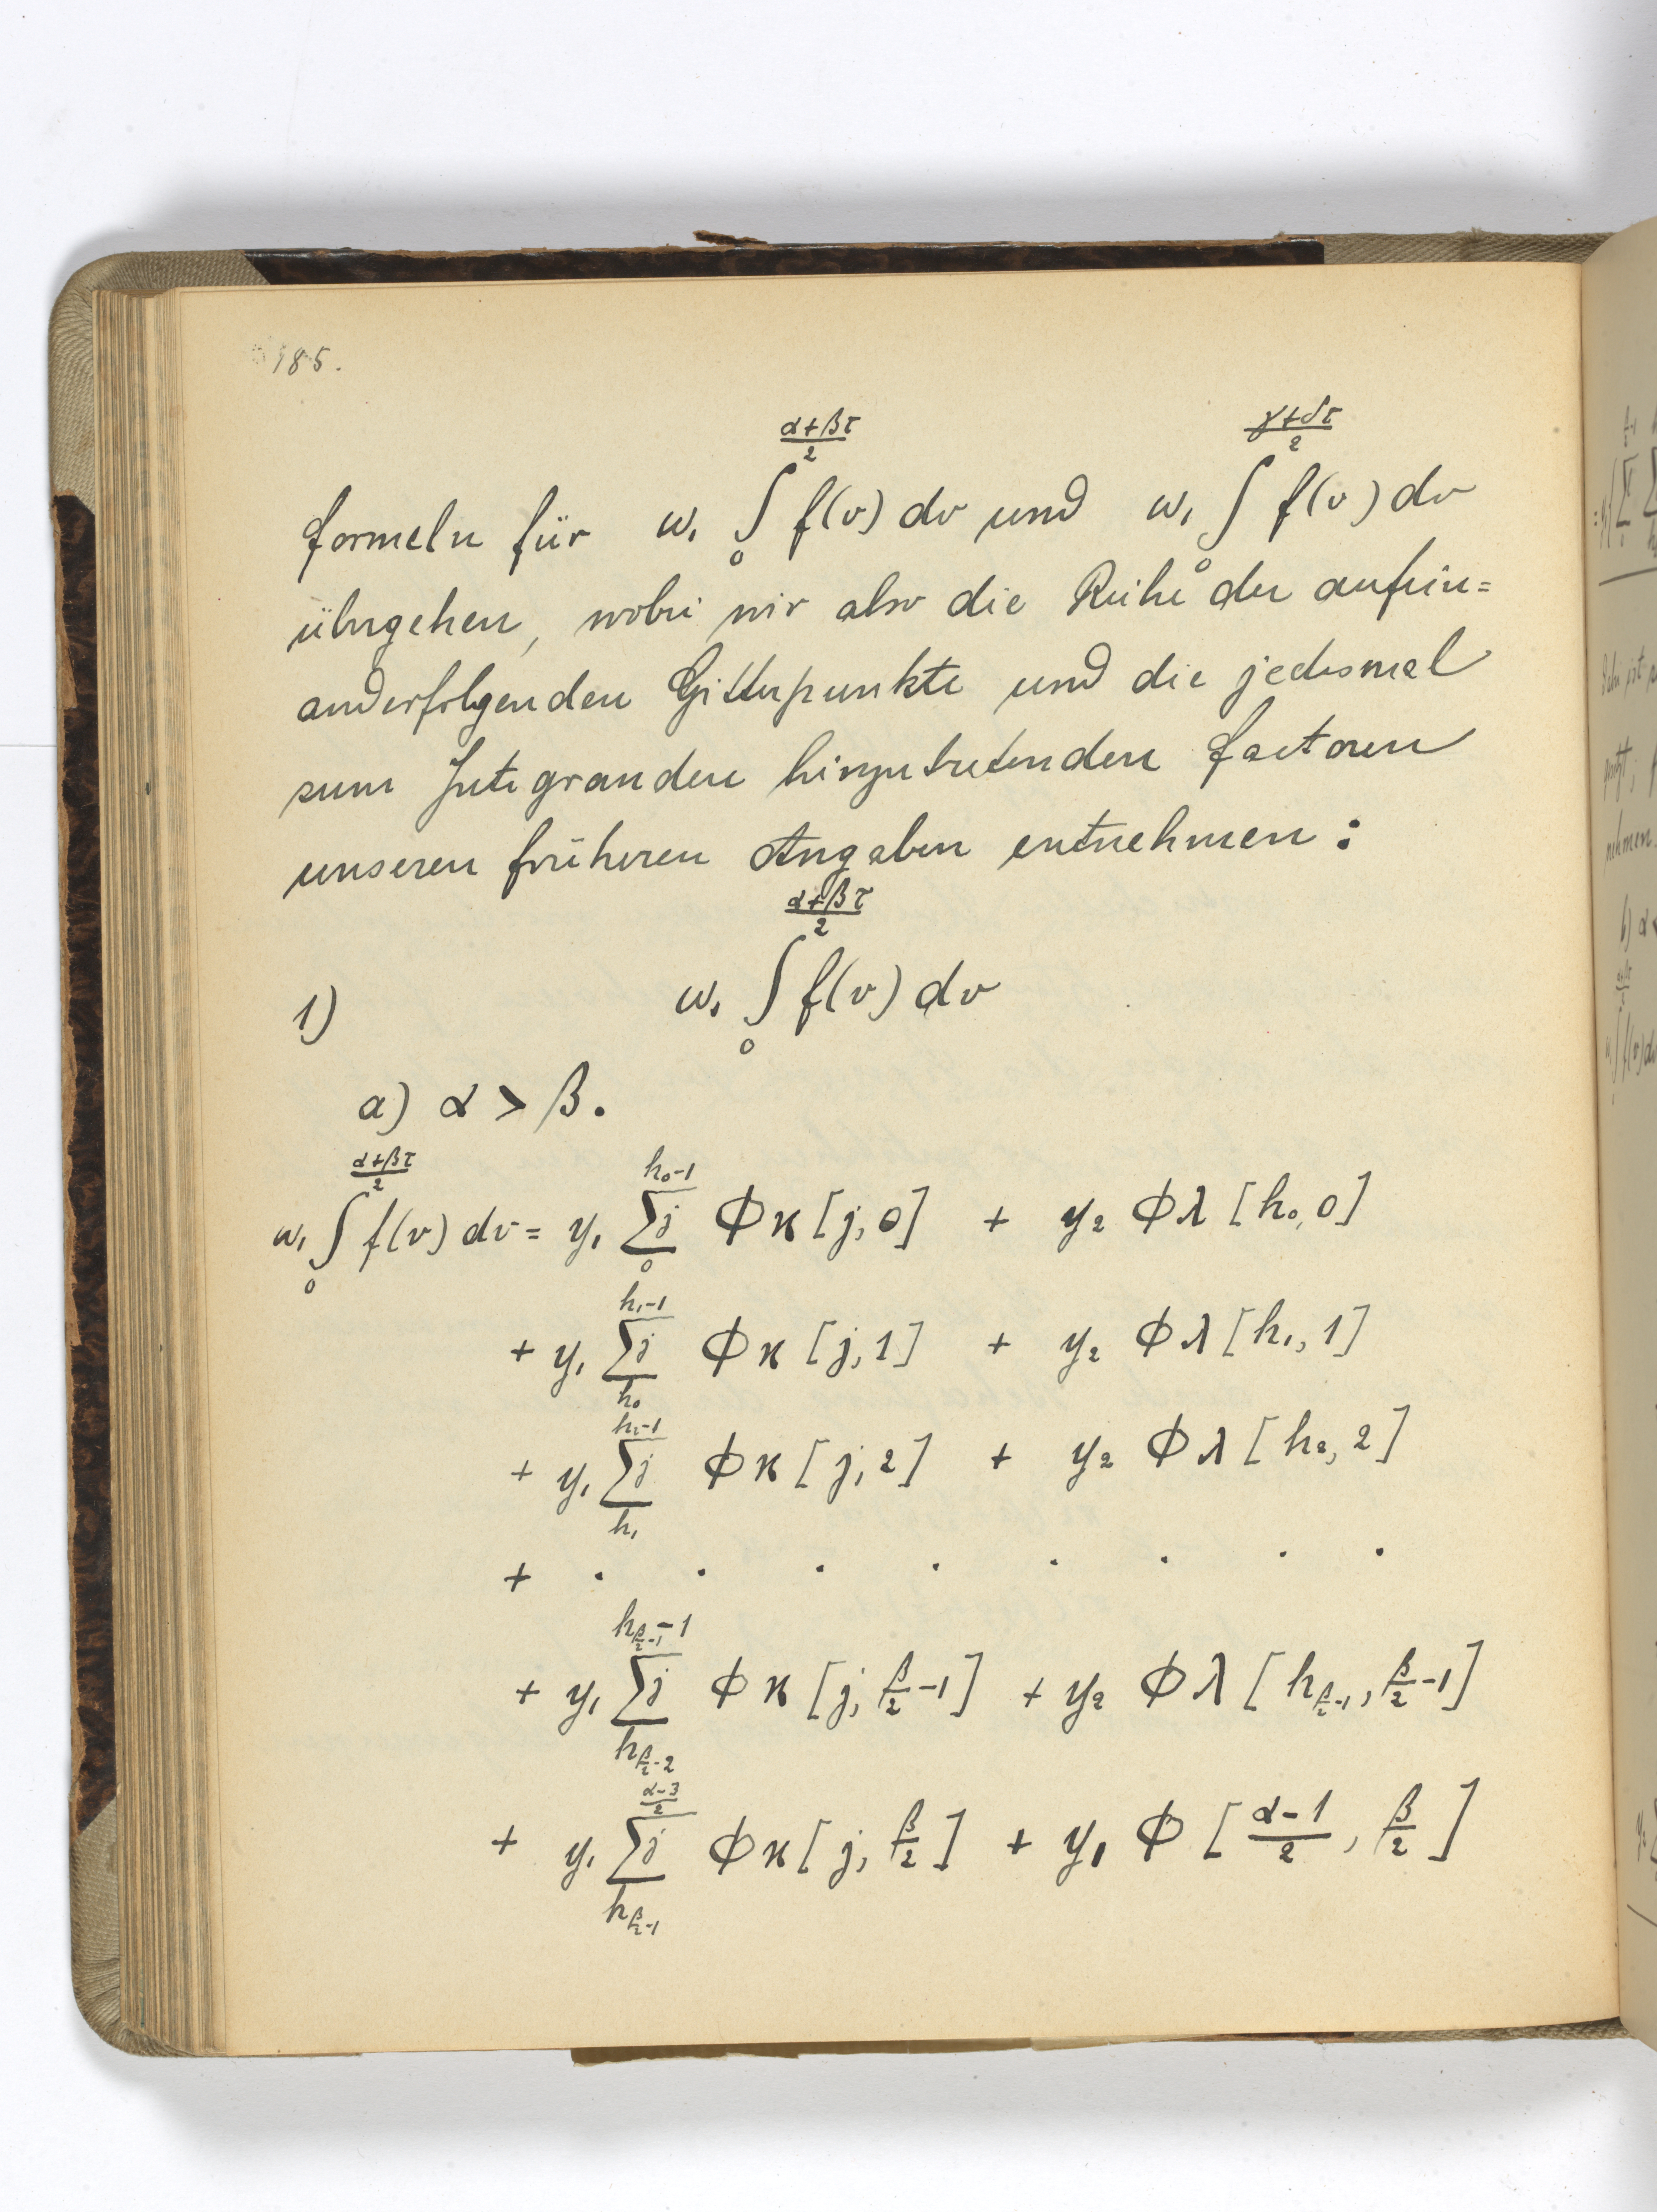 185.
formeln für ω₁ ∫₀^{(α+βτ)/2} f(v) dv und ω₁ ∫₀^{(γ+δτ)/2} f(v) dv
übergehen, wobei wir also die Reihe der aufein=
anderfolgenden Gitterpunkte und die jedesmal
zum Integranden hinzutretenden Factoren
unseren früheren Angaben entnehmen:
1) ω₁ ∫₀^{(α+βτ)/2} f(v) dv
a) α > β.
ω₁ ∫₀^{(α+βτ)/2} f(v) dv = y₁ Σj_{0}^{h₀-1} Φϰ[j, 0] + y₂ Φλ[h₀, 0]
+ y₁ Σj_{h₀}^{h₁-1} Φϰ[j, 1] + y₂ Φλ[h₁, 1]
+ y₁ Σj_{h₁}^{h₂-1} Φϰ[j, 2] + y₂ Φλ[h₂, 2]
+ . . . . . . . .
+ y₁ Σj_{h_{β/2-2}}^{h_{β/2-1}-1} Φϰ[j, β/2-1] + y₂ Φλ[h_{β/2-1}, β/2-1]
+ y₁ Σj_{h_{β/2-1}}^{(α-3)/2} Φϰ[j, β/2] + y₁ Φ[(α-1)/2, β/2]